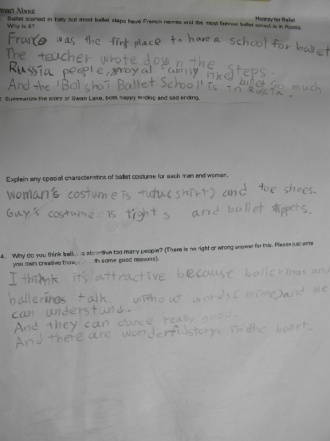 Hooray for Ballet
Ballet started in Italy but most ballet steps have French names and the most famous ballet school is in Russia.
Why is it?
France was the first place to have a school for ballet
The teacher wrote down the steps.
Russia people, royal family liked ballet so much
And the 'Bolshoi Ballet School' is in Russia.
Summarize the story of Swan Lake, both happy ending and sad ending.
Explain any special characteristics of ballet costume for each man and woman.
woman's costume is tutu(skirt) and toe shoes.
Guy's costume is tights and ballet slippers.
4. Why do you think attractive too many people? (There is no right or wrong answer for this. Please just write
you own creative with some good reasons).
I think it's attractive because ballerinas and
ballerinos talk without words (mime) and we
can understand.
And they can dance really good.
And there are wonderful storys in the